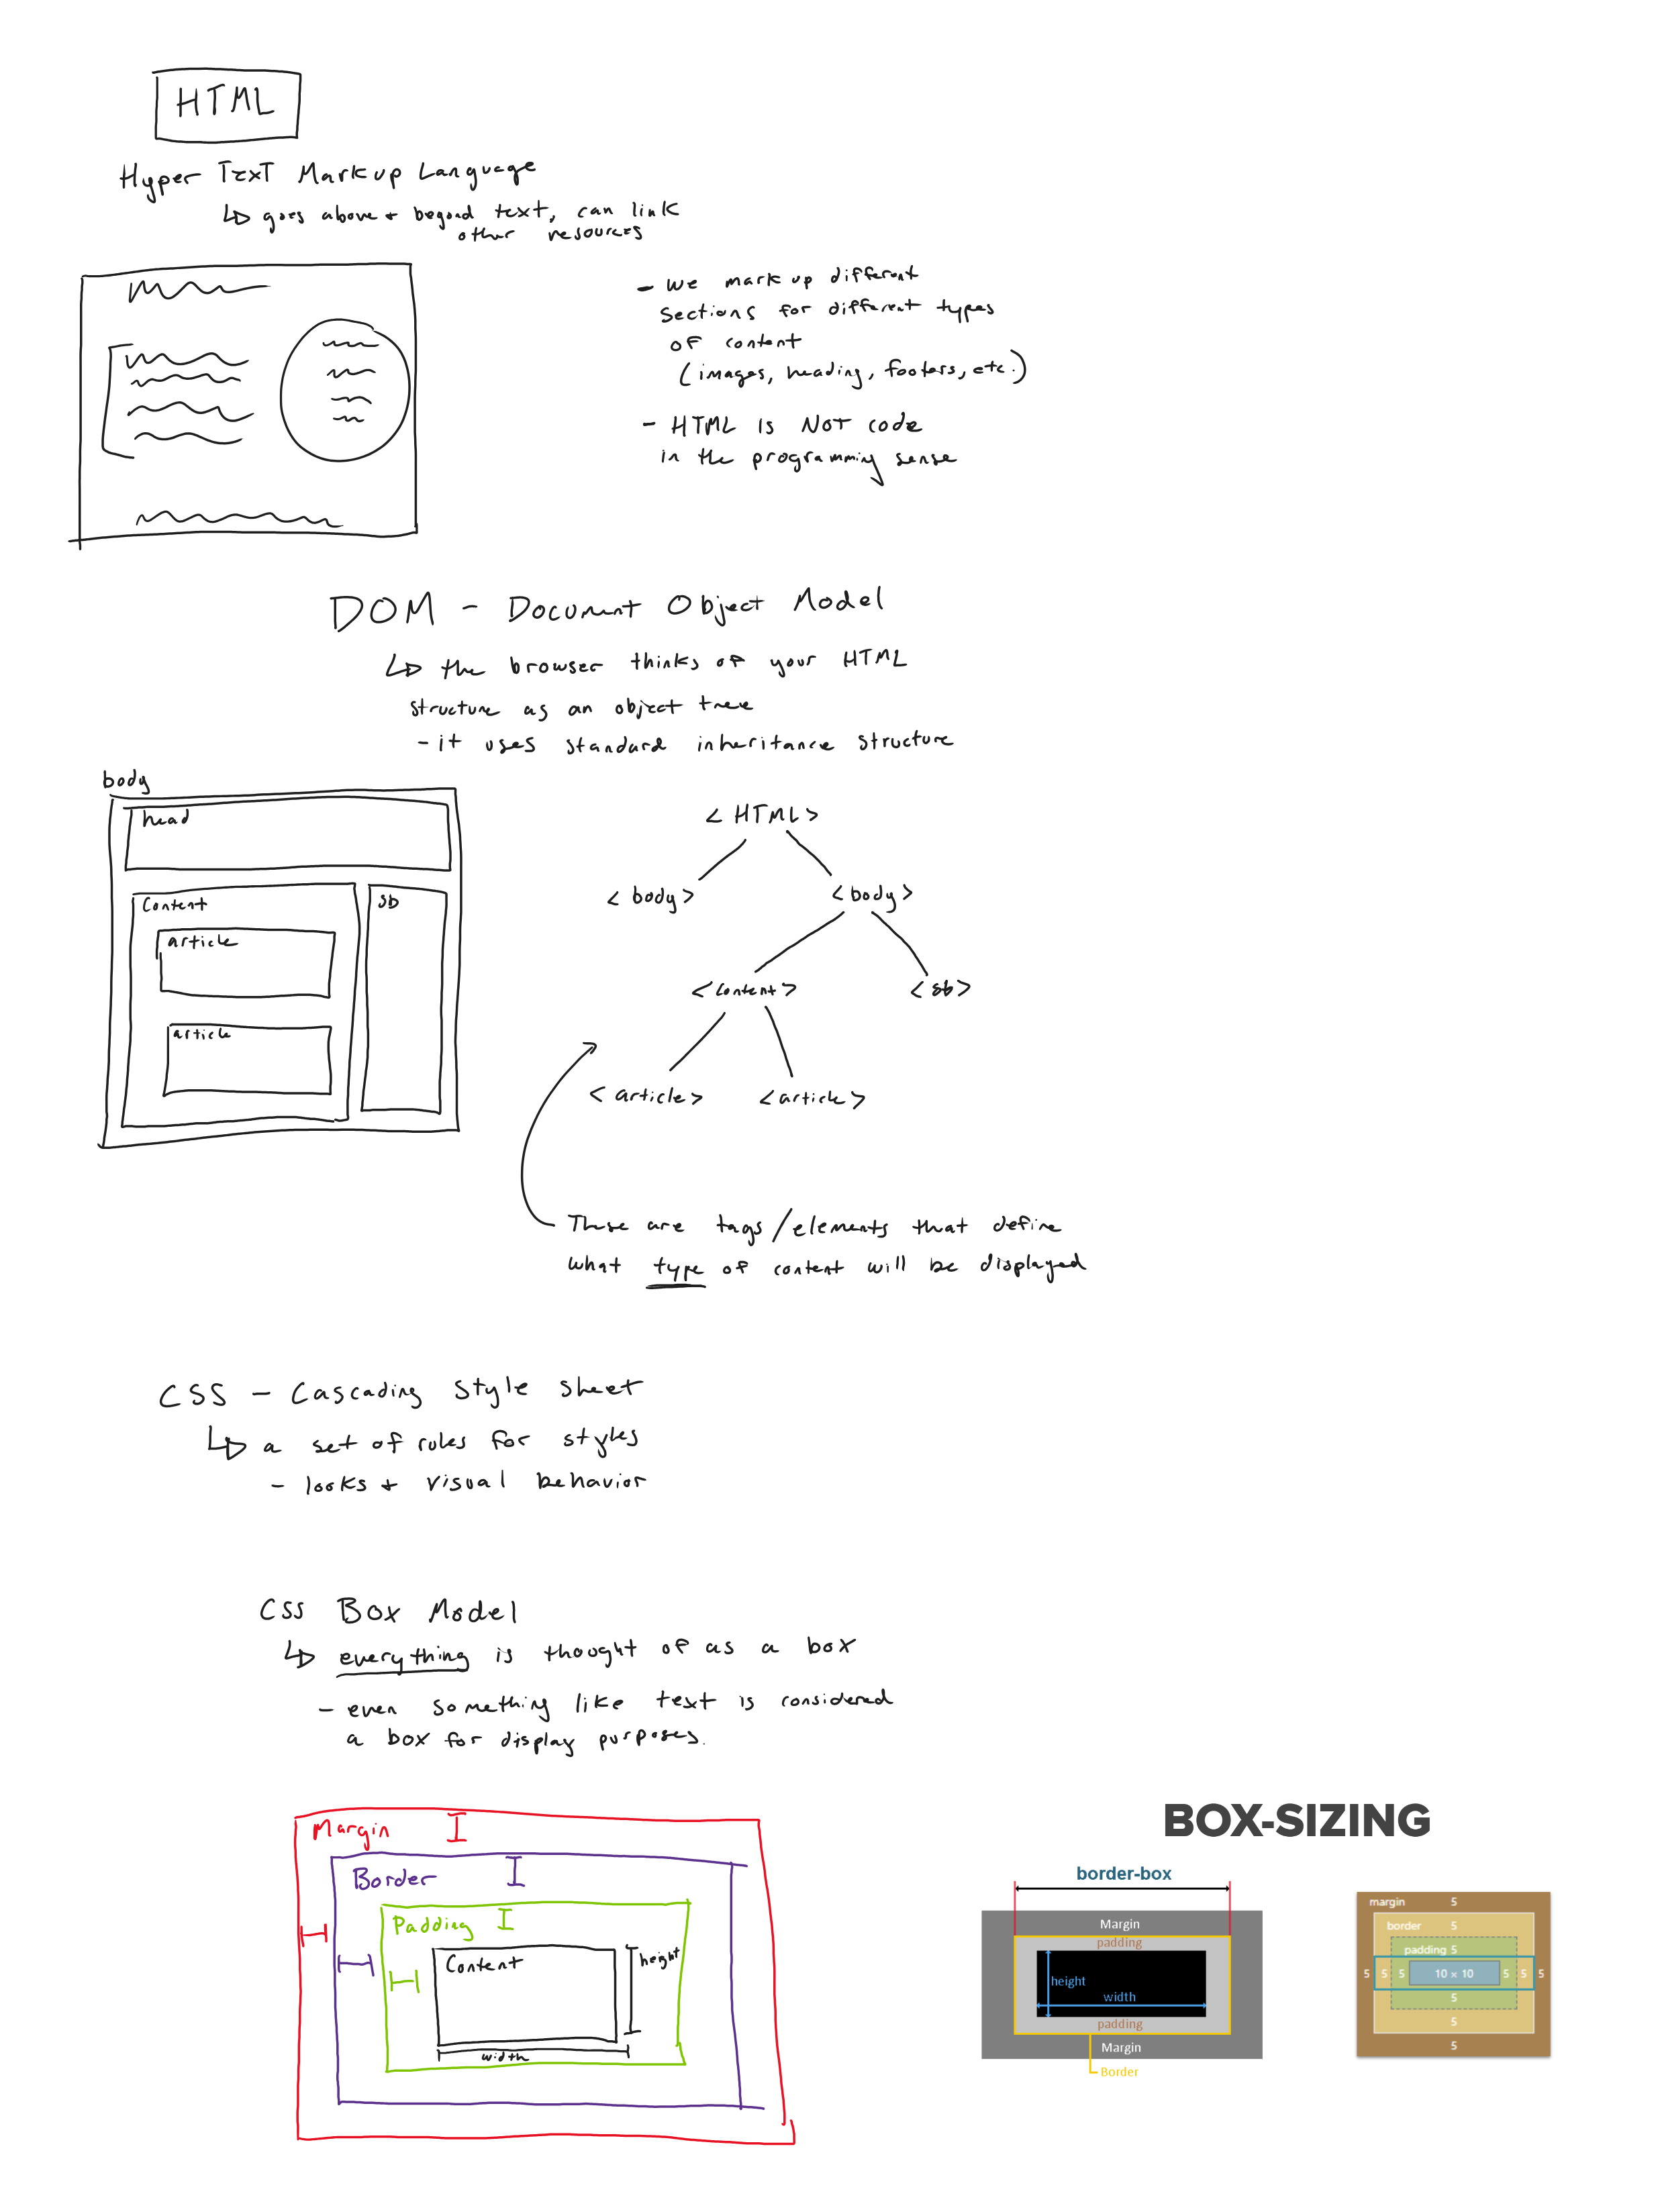 HTML
Hyper Text Markup Language
goes above + beyond text, can link
other resources
- We mark up different
sections for different types
of content
(images, heading, footers, etc.)
- HTML is NOT code
in the programming sense
DOM - Document Object Model
the browser thinks of your HTML
structure as an object tree
- it uses standard inheritance structure
body
head
Content
sb
article
article
< HTML >
< body >
< body >
< content >
< sb >
< article >
< article >
These are tags/elements that define
what type of content will be displayed
CSS - Cascading Style Sheet
a set of rules for styles
- looks + visual behavior
CSS Box Model
everything is thought of as a box
- even something like text is considered
a box for display purposes.
Margin
Border
Padding
Content
height
width
BOX-SIZING
border-box
Margin
padding
height
width
padding
Margin
Border
margin 5
border 5
padding 5
5 5 5 10 × 10 5 5 5
5
5
5